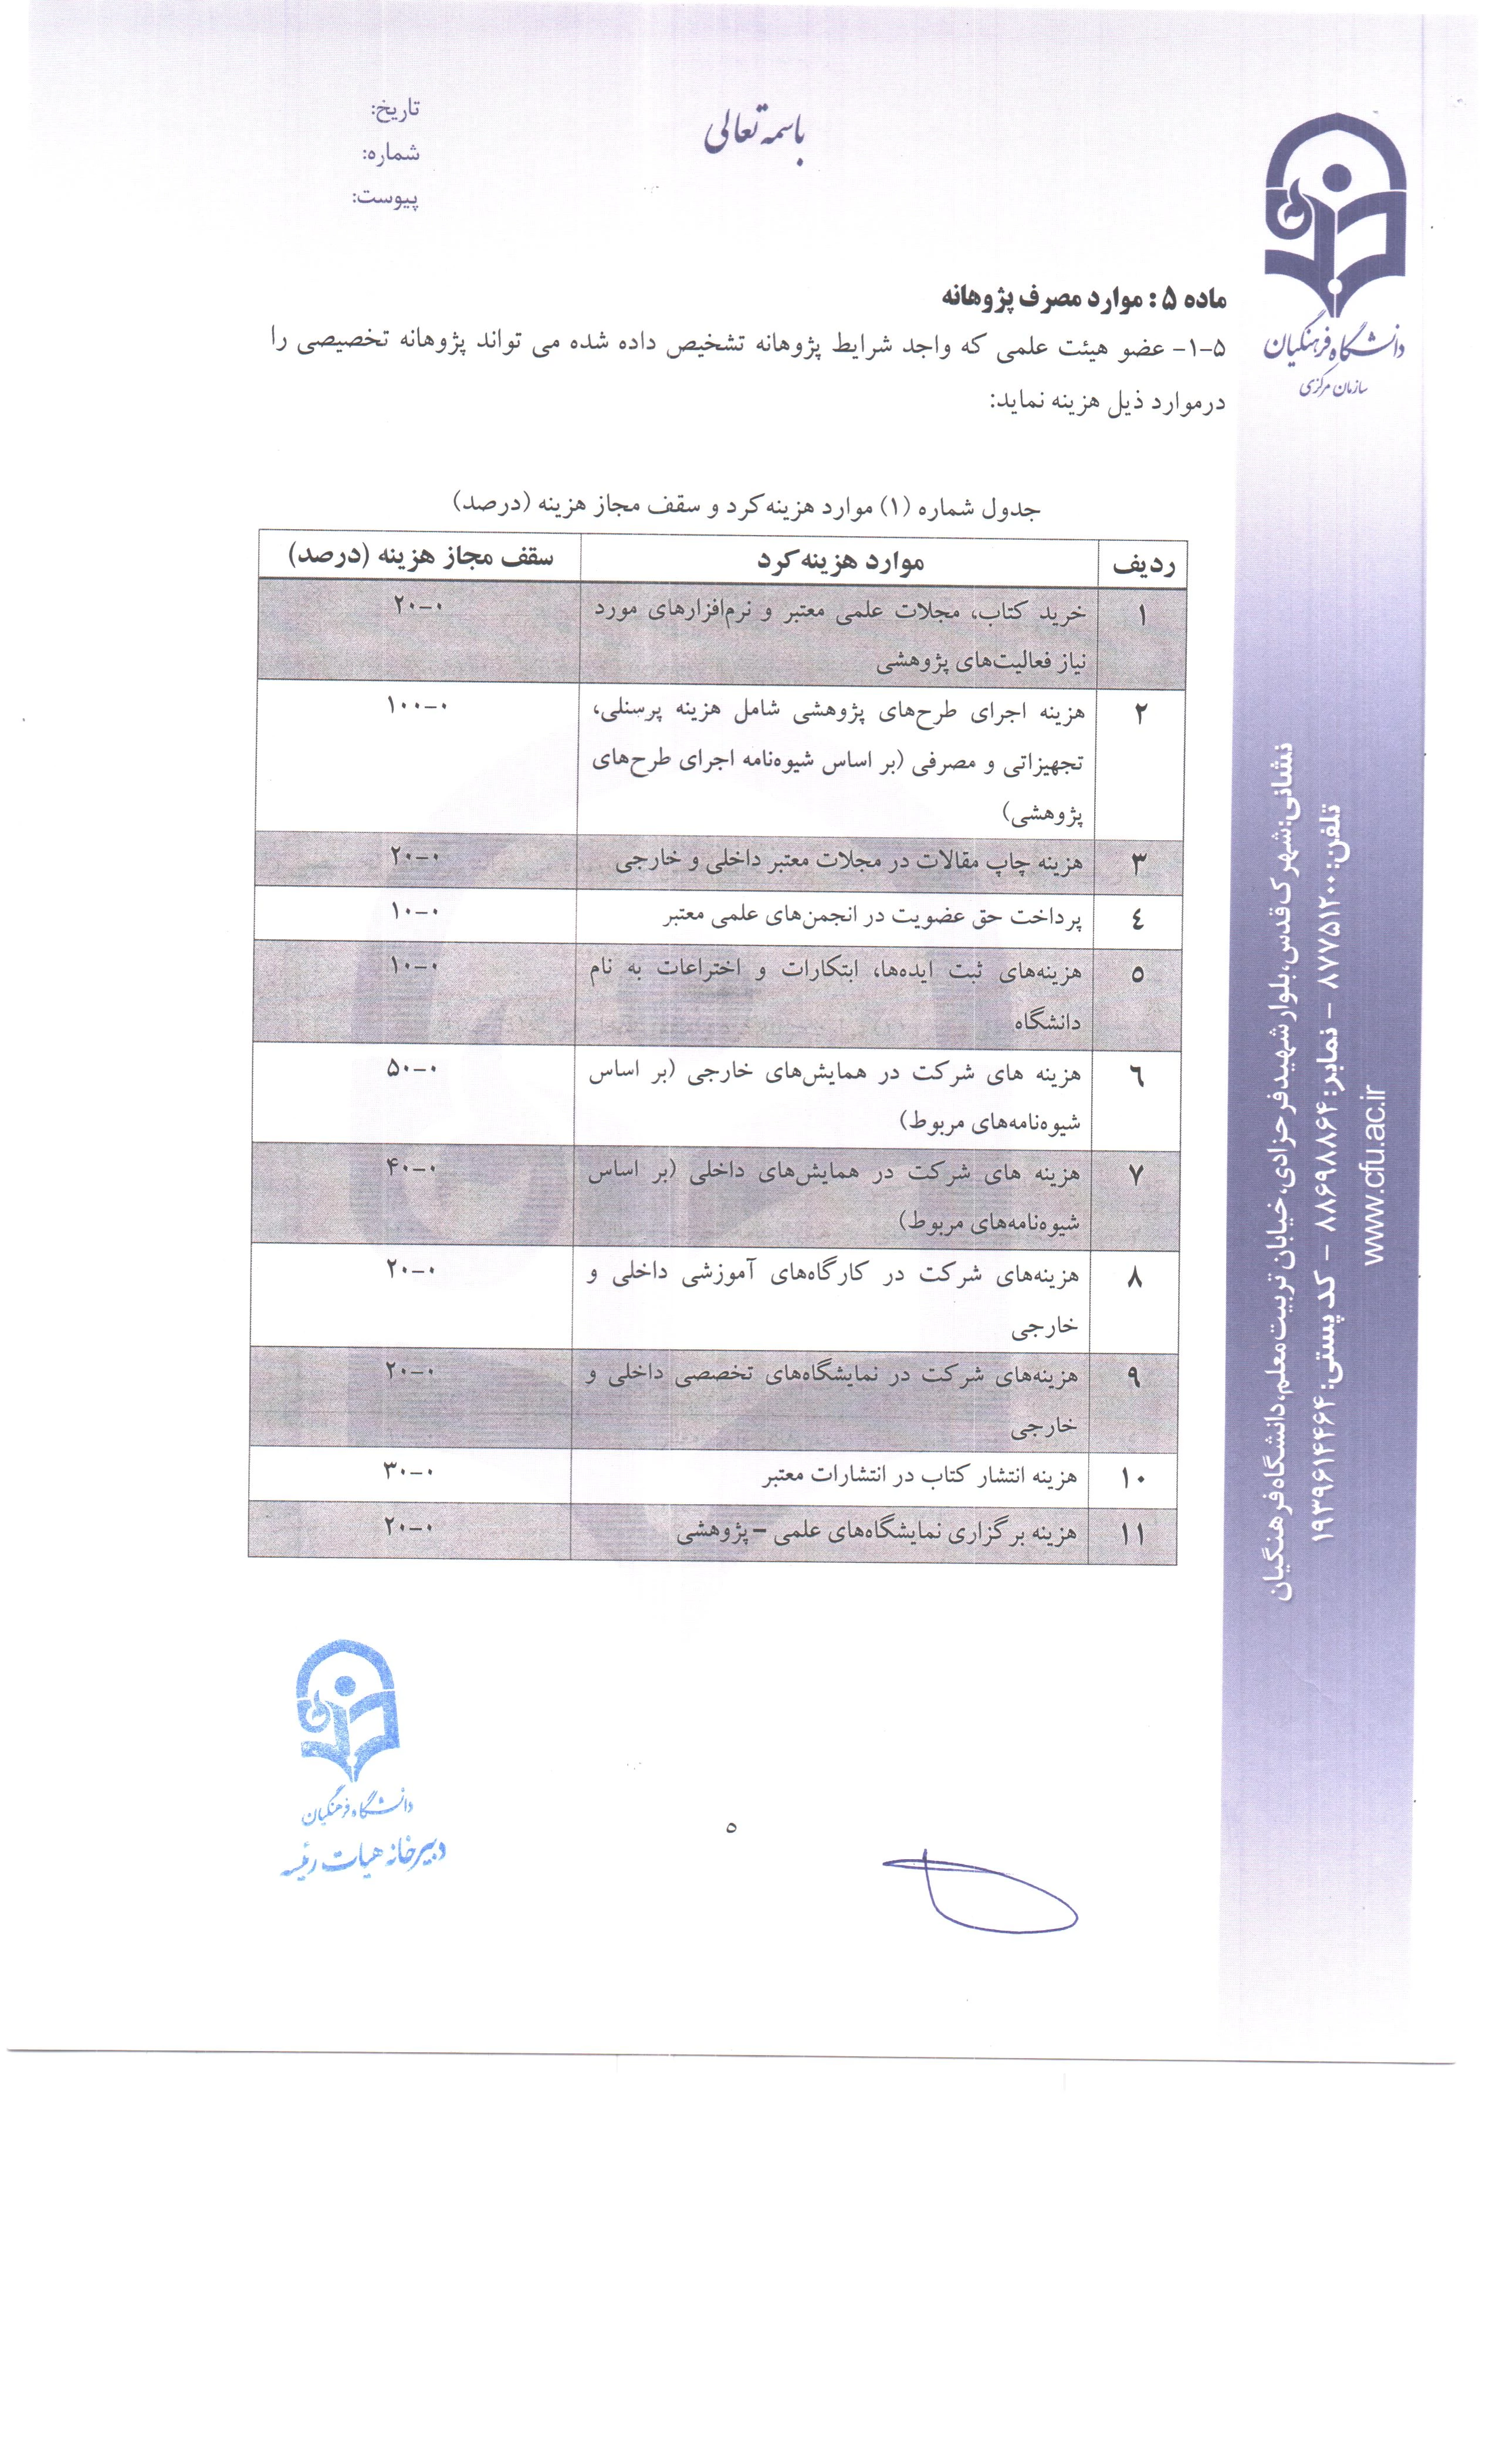 باسمه تعالی
تاریخ:
شماره:
پیوست:
دانشگاه فرهنگیان
سازمان مرکزی
ماده ۵ : موارد مصرف پژوهانه
۵-۱- عضو هیئت علمی که واجد شرایط پژوهانه تشخیص داده شده می تواند پژوهانه تخصیصی را
درموارد ذیل هزینه نماید:
جدول شماره (۱) موارد هزینه‌کرد و سقف مجاز هزینه (درصد)
ردیف موارد هزینه‌کرد سقف مجاز هزینه (درصد)
۱ خرید کتاب، مجلات علمی معتبر و نرم‌افزارهای مورد ۰-۲۰
نیاز فعالیت‌های پژوهشی
۲ هزینه اجرای طرح‌های پژوهشی شامل هزینه پرسنلی، ۰-۱۰۰
تجهیزاتی و مصرفی (بر اساس شیوه‌نامه اجرای طرح‌های
پژوهشی)
۳ هزینه چاپ مقالات در مجلات معتبر داخلی و خارجی ۰-۲۰
٤ پرداخت حق عضویت در انجمن‌های علمی معتبر ۰-۱۰
٥ هزینه‌های ثبت ایده‌ها، ابتکارات و اختراعات به نام ۰-۱۰
دانشگاه
٦ هزینه های شرکت در همایش‌های خارجی (بر اساس ۰-۵۰
شیوه‌نامه‌های مربوط)
۷ هزینه های شرکت در همایش‌های داخلی (بر اساس ۰-۴۰
شیوه‌نامه‌های مربوط)
۸ هزینه‌های شرکت در کارگاه‌های آموزشی داخلی و ۰-۲۰
خارجی
۹ هزینه‌های شرکت در نمایشگاه‌های تخصصی داخلی و ۰-۲۰
خارجی
۱۰ هزینه انتشار کتاب در انتشارات معتبر ۰-۳۰
۱۱ هزینه برگزاری نمایشگاه‌های علمی – پژوهشی ۰-۲۰
نشانی: شهرک قدس، بلوار شهید فرحزادی، خیابان تربیت معلم، دانشگاه فرهنگیان
تلفن: ۸۷۷۵۱۲۰۰ - نمابر: ۸۸۶۹۸۸۶۴ - کد پستی: ۱۹۳۹۶۱۴۴۶۴
www.cfu.ac.ir
دانشگاه فرهنگیان
دبیرخانه هیات رئیسه
٥